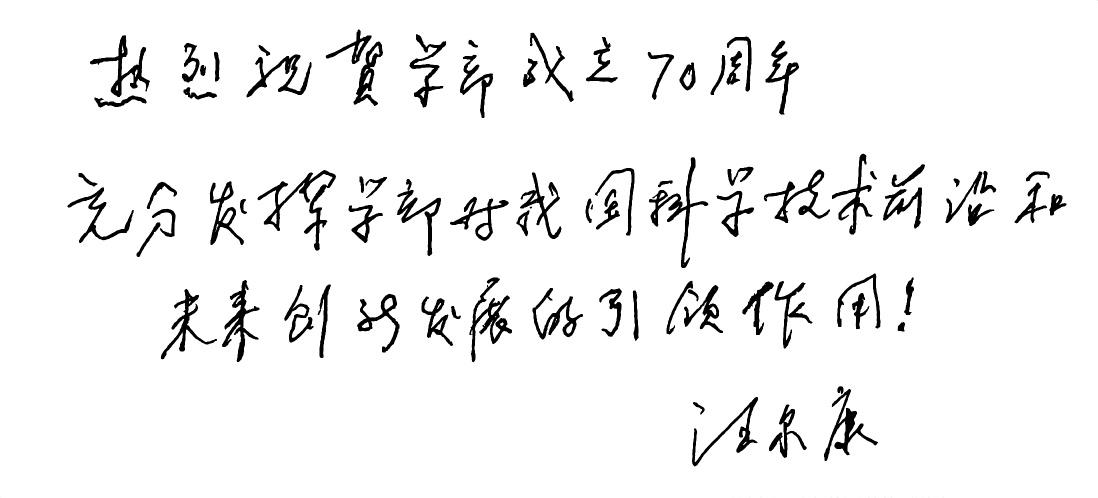 热烈祝賀学部成立70周年
充分发挥学部对我国科学技术前沿和
未来创新发展的引领作用！
汪尔康